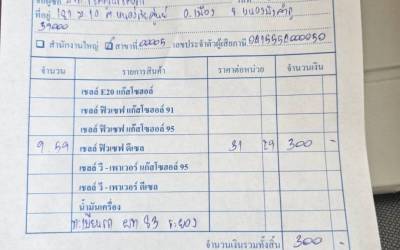 ที่อยู่ 181 ม.10 ต.หนอง อ.เมือง จ.หนองบัวลำภู
39000
สำนักงานใหญ่ ☑ สาขาที่ 00005 เลขประจำตัวผู้เสียภาษี
จำนวน รายการสินค้า ราคาต่อหน่วย จำนวนเงิน
เชลล์ E20 แก๊สโซฮอล์
เชลล์ ฟิวเซฟ แก๊สโซฮอล์ 91
เชลล์ ฟิวเซฟ แก๊สโซฮอล์ 95
9.59 เชลล์ ฟิวเซฟ ดีเซล 31 29 300 -
เชลล์ วี - เพาเวอร์ แก๊สโซฮอล์ 95
เชลล์ วี - เพาเวอร์ ดีเซล
น้ำมันเครื่อง
ทะเบียนรถ 83 ระยอง
จำนวนเงินรวมทั้งสิ้น 300 -